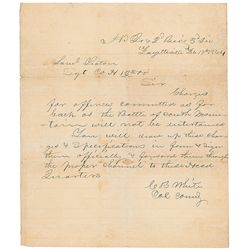 Hd Qrs 2d Brig 3d Div
Fayetteville
Sergt Co H
Sir
Charges
for offences committed as far
back as the Battle of South Moun-
tain will not be entertained
You will draw up these Char-
ges & Specifications in form & sign
them officially & forward them through
the proper channel to these Head
Quarters
C B White
Col Comdg